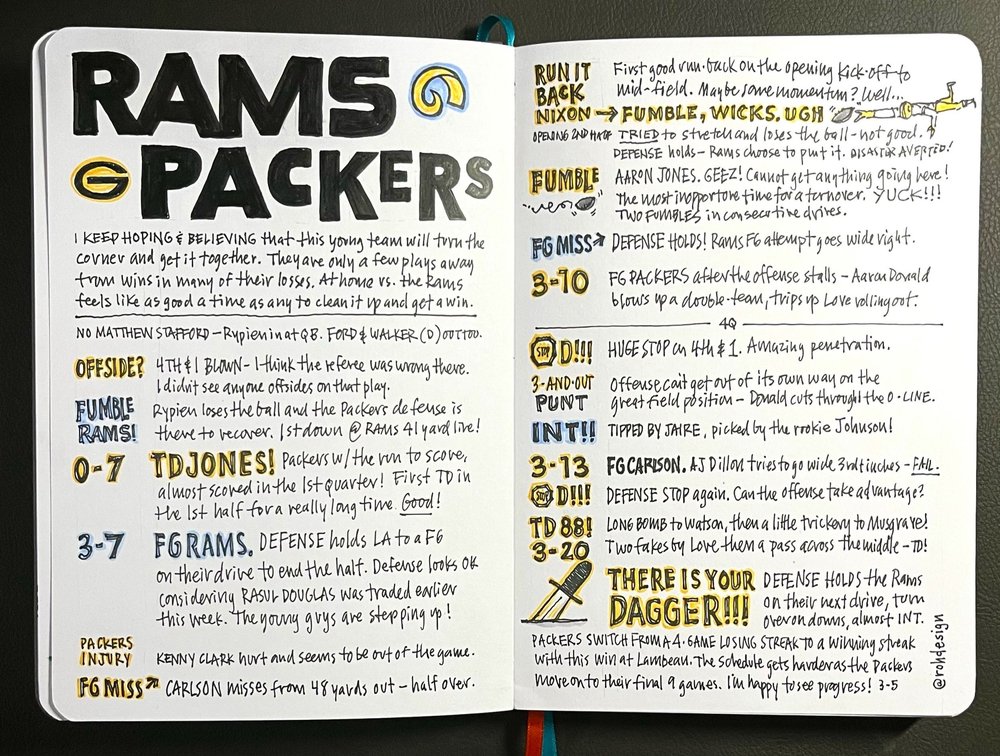 RAMS
G PACKERS
I KEEP HOPING & BELIEVING that this young team will turn the
corner and get it together. They are only a few plays away
from wins in many of their losses. At home vs. the Rams
feels like as good a time as any to clean it up and get a win.
NO MATTHEW STAFFORD – Rypien in at QB. FORD & WALKER (D) OUT TOO.
OFFSIDE? 4TH & 1 BLOWN – I think the referee was wrong there.
I didn't see anyone offsides on that play.
FUMBLE RAMS! Rypien loses the ball and the Packers defense is
there to recover. 1st down @ RAMS 41 yard line!
0-7 TD JONES! Packers w/ the run to score,
almost scored in the 1st quarter! First TD in
the 1st half for a really long time. Good!
3-7 FG RAMS. DEFENSE holds LA to a FG
on their drive to end the half. Defense looks OK
considering RASUL DOUGLAS was traded earlier
this week. The young guys are stepping up!
PACKERS INJURY KENNY CLARK hurt and seems to be out of the game.
FG MISS CARLSON misses from 48 yards out – half over.
RUN IT BACK First good run-back on the opening kick-off to
mid-field. Maybe some momentum? Well...
NIXON → FUMBLE, WICKS. UGH
OPENING 2ND HALF TRIED to stretch and loses the ball – not good.
DEFENSE holds – Rams choose to punt it. DISASTER AVERTED!
FUMBLE AARON JONES. GEEZ! Cannot get anything going here!
The most inopportune time for a turnover. YUCK!!!
TWO FUMBLES in consecutive drives.
FG MISS DEFENSE HOLDS! Rams FG attempt goes wide right.
3-10 FG PACKERS after the offense stalls – Aaron Donald
blows up a double-team, trips up Love rolling out.
4Q
STOP D!!! HUGE STOP on 4th & 1. Amazing penetration.
3-AND-OUT PUNT Offense can't get out of its own way on the
great field position – Donald cuts through the O-LINE.
INT!! TIPPED BY JAIRE, picked by the rookie Johnson!
3-13 FG CARLSON. AJ Dillon tries to go wide 3rd & inches – FAIL.
STOP D!!! DEFENSE STOP again. Can the offense take advantage?
TD 88! LONG BOMB to Watson, then a little trickery to Musgrave!
3-20 Two fakes by Love then a pass across the middle – TD!
THERE IS YOUR DAGGER!!! DEFENSE HOLDS the Rams
on their next drive, turn
over on downs, almost INT.
PACKERS SWITCH FROM A 4-GAME LOSING STREAK to a winning streak
with this win at Lambeau. The schedule gets harder as the Packers
move on to their final 9 games. I'm happy to see progress! 3-5
@rohdesign